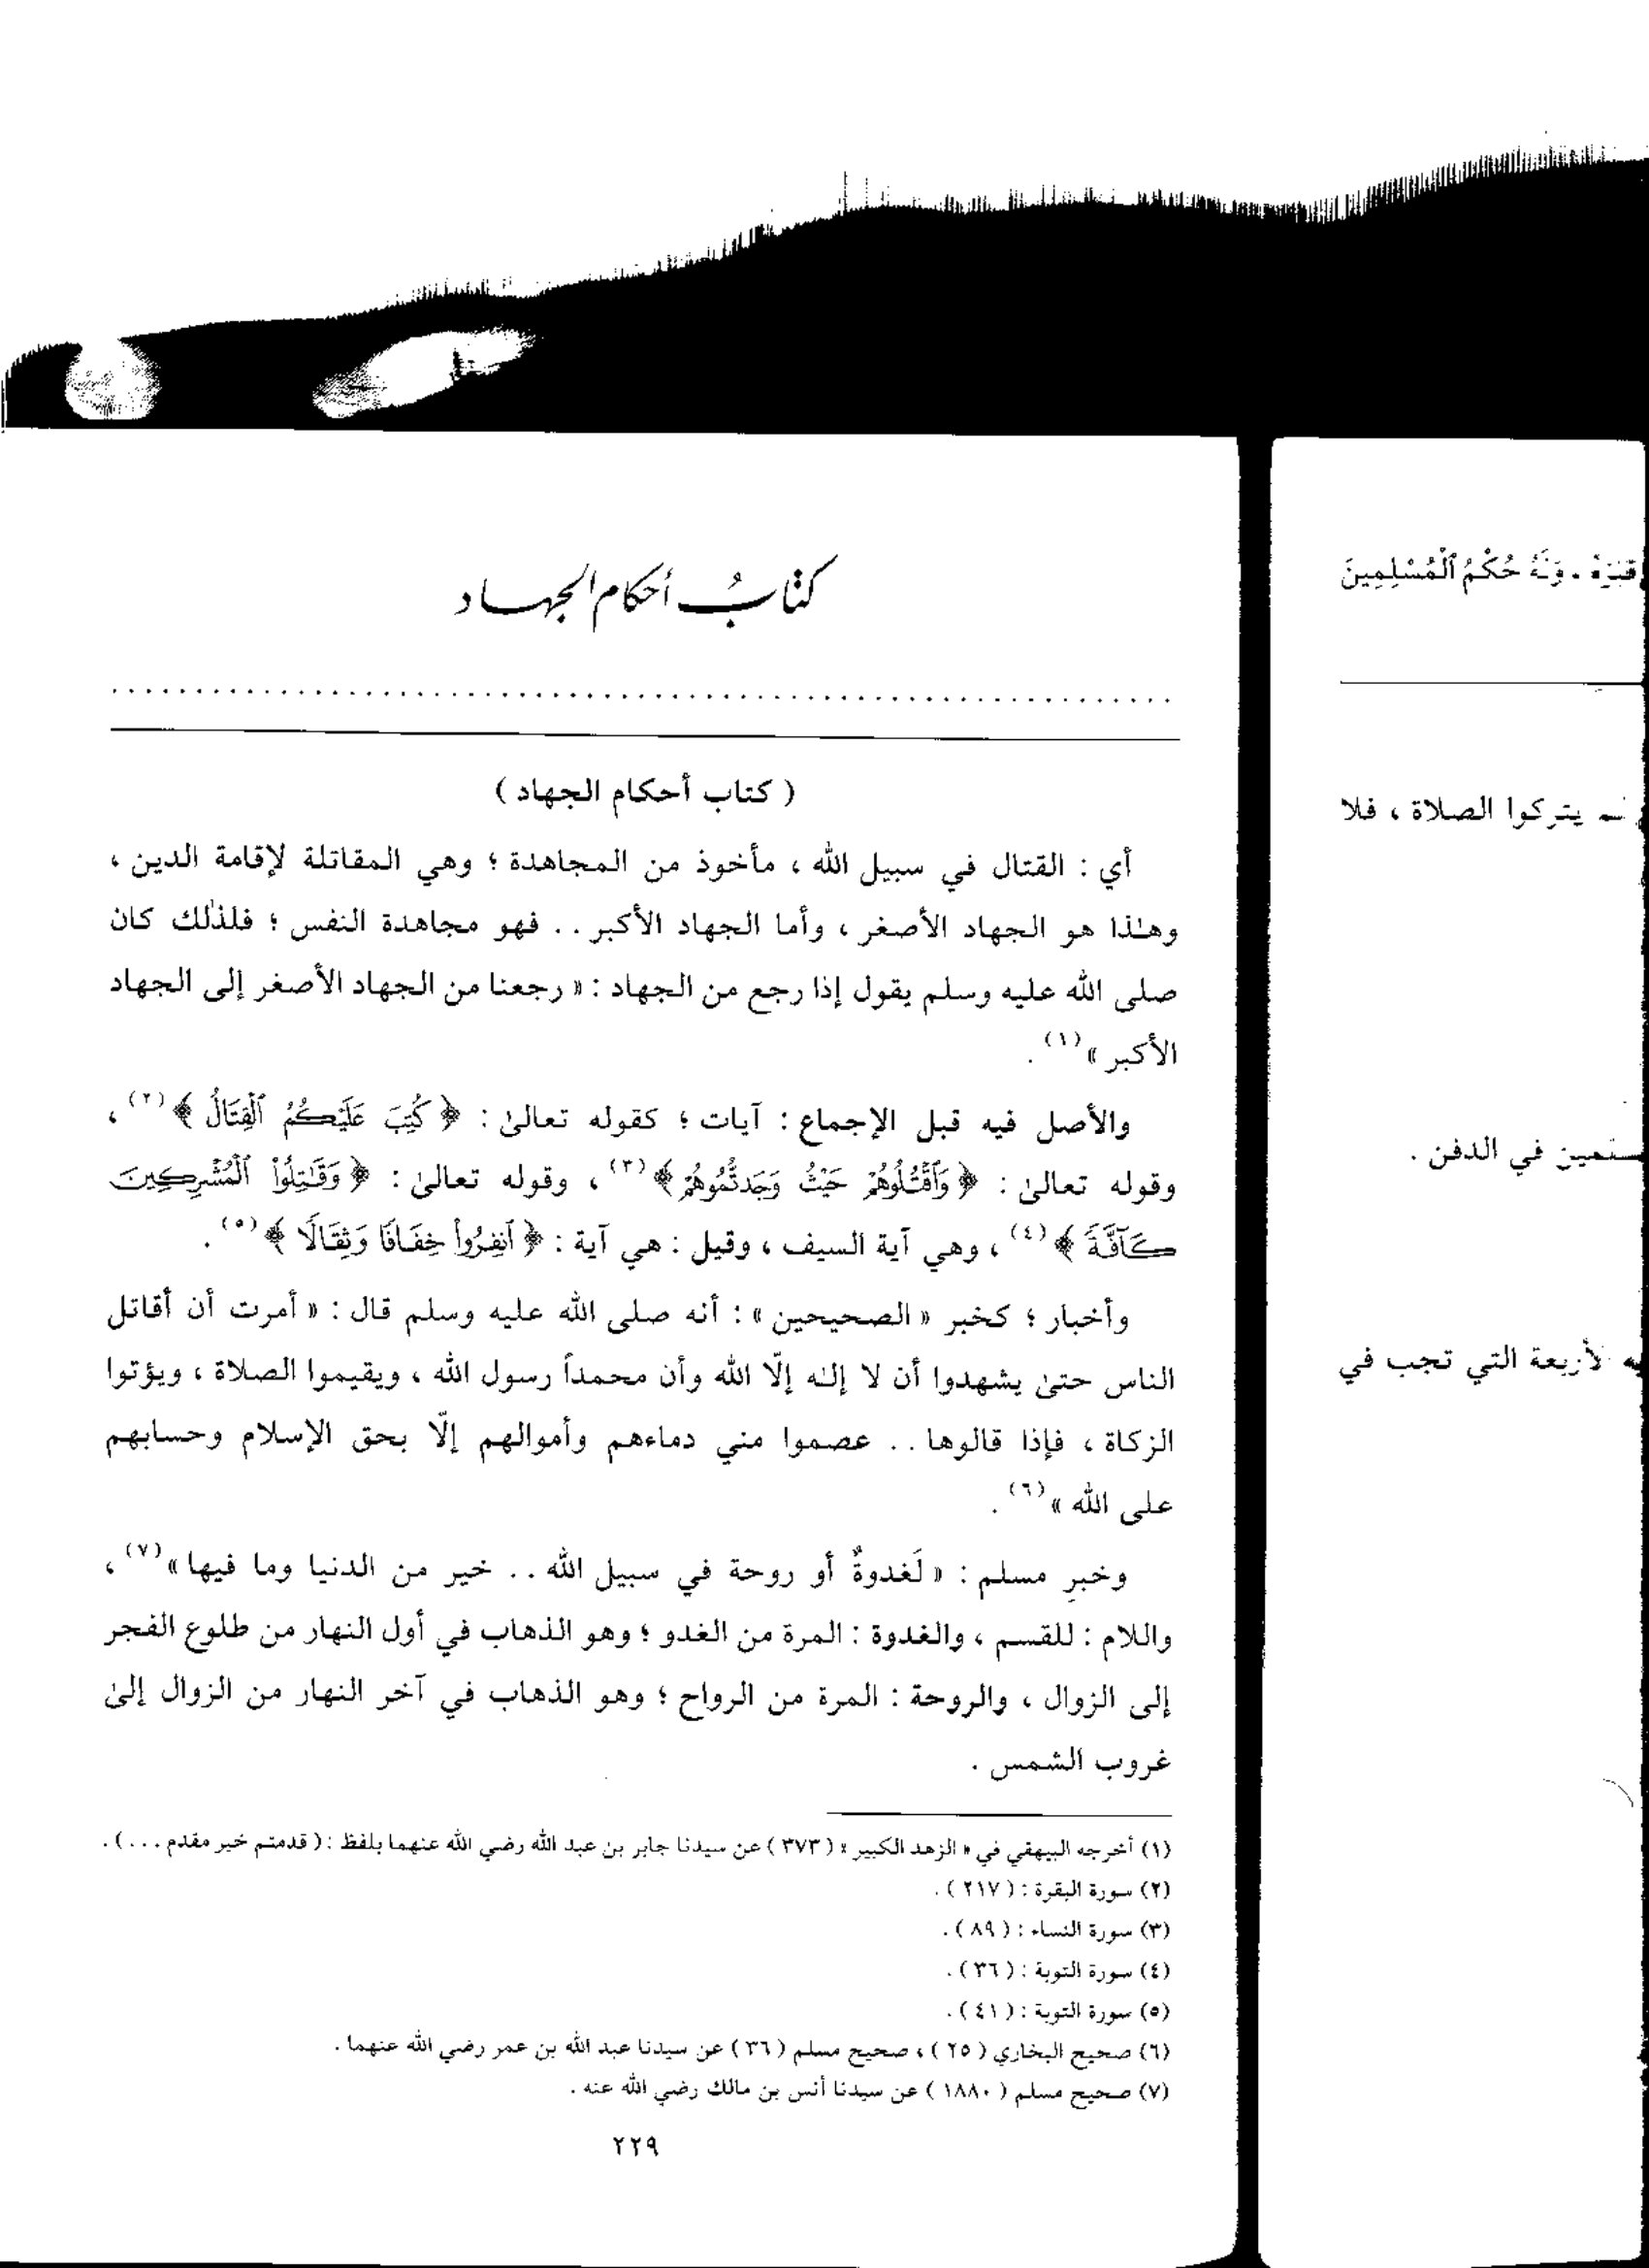 قبره . وله حُكْمُ ٱلْمُسْلِمِينَ
يتركوا الصلاة ، فلا
في الدفن .
الأربعة التي تجب في
كتابُ أحكام الجهاد
( كتاب أحكام الجهاد )
أي : القتال في سبيل الله ، مأخوذ من المجاهدة ؛ وهي المقاتلة لإقامة الدين ،
وهـٰذا هو الجهاد الأصغر ، وأما الجهاد الأكبر . . فهو مجاهدة النفس ؛ فلذٰلك كان
صلى الله عليه وسلم يقول إذا رجع من الجهاد : « رجعنا من الجهاد الأصغر إلى الجهاد
الأكبر »(١) .
والأصل فيه قبل الإجماع : آيات ؛ كقوله تعالىٰ : ﴿ كُتِبَ عَلَيْكُمُ ٱلْقِتَالُ ﴾(٢) ،
وقوله تعالىٰ : ﴿ وَٱقْتُلُوهُمْ حَيْثُ وَجَدتُّمُوهُمْ ﴾(٣) ، وقوله تعالىٰ : ﴿ وَقَـٰتِلُوا۟ ٱلْمُشْرِكِينَ
كَآفَّةً ﴾(٤) ، وهي آية السيف ، وقيل : هي آية : ﴿ ٱنفِرُوا۟ خِفَافًا وَثِقَالًا ﴾(٥) .
وأخبار ؛ كخبر « الصحيحين » : أنه صلى الله عليه وسلم قال : « أمرت أن أقاتل
الناس حتىٰ يشهدوا أن لا إلـٰه إلّا الله وأن محمداً رسول الله ، ويقيموا الصلاة ، ويؤتوا
الزكاة ، فإذا قالوها . . عصموا مني دماءهم وأموالهم إلّا بحق الإسلام وحسابهم
على الله »(٦) .
وخبرِ مسلم : « لَغدوةٌ أو روحة في سبيل الله . . خير من الدنيا وما فيها »(٧) ،
واللام : للقسم ، والغدوة : المرة من الغدو ؛ وهو الذهاب في أول النهار من طلوع الفجر
إلى الزوال ، والروحة : المرة من الرواح ؛ وهو الذهاب في آخر النهار من الزوال إلىٰ
غروب الشمس .
(١) أخرجه البيهقي في « الزهد الكبير » ( ٣٧٣ ) عن سيدنا جابر بن عبد الله رضي الله عنهما بلفظ : ( قدمتم خير مقدم . . . ) .
(٢) سورة البقرة : ( ٢١٧ ) .
(٣) سورة النساء : ( ٨٩ ) .
(٤) سورة التوبة : ( ٣٦ ) .
(٥) سورة التوبة : ( ٤١ ) .
(٦) صحيح البخاري ( ٢٥ ) ، صحيح مسلم ( ٣٦ ) عن سيدنا عبد الله بن عمر رضي الله عنهما .
(٧) صحيح مسلم ( ١٨٨٠ ) عن سيدنا أنس بن مالك رضي الله عنه .
٢٢٩